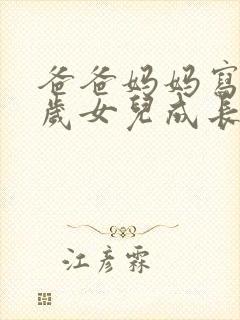 爸爸妈妈寫
歲女兒成長
江彦霖